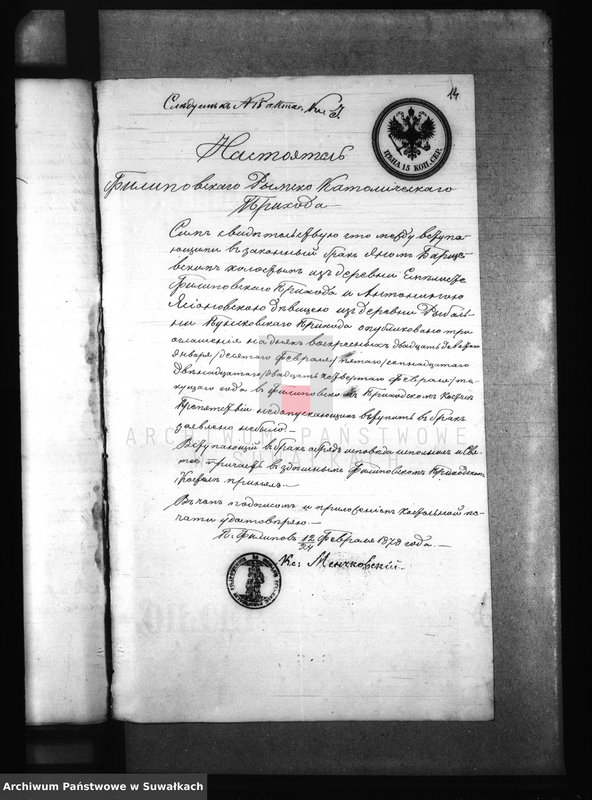 14
Слѣдуетъ къ № акта
ЦѢНА 15 КОП. СЕР.
Настоятель
Филиповскаго Римско Католическаго
Прихода
Симъ свидѣтельствую что между вступа-
ющими въ законный бракъ Яномъ
холостымъ изъ деревни
Филиповскаго Прихода и Антониною
Ясіоновскою дѣвицею изъ деревни
Прихода опубликовано три
оглашенія на дняхъ воскресныхъ двадцать девятаго
Января/десятаго Февраля/пятаго/семнадцатаго
двѣнадцатаго/двадцать четвертаго Февраля/те-
кущаго года въ Филиповскомъ Приходскомъ Костелѣ
Препятствій недопускающихъ вступить въ бракъ
заявлено небыло.
ARCHIWUM PAŃSTWOWE
Вступающій въ бракъ обрядъ исповѣди исполнилъ и Свя-
въ здѣшнемъ Филиповскомъ Приходскомъ
Костелѣ принялъ.
Въ чемъ подписомъ и приложеніемъ костельной пе-
чати удостовѣряю
В. Филиповъ 12/24 Февраля 1878 года.
Кс: Менчковскій.
Archiwum Państwowe w Suwałkach